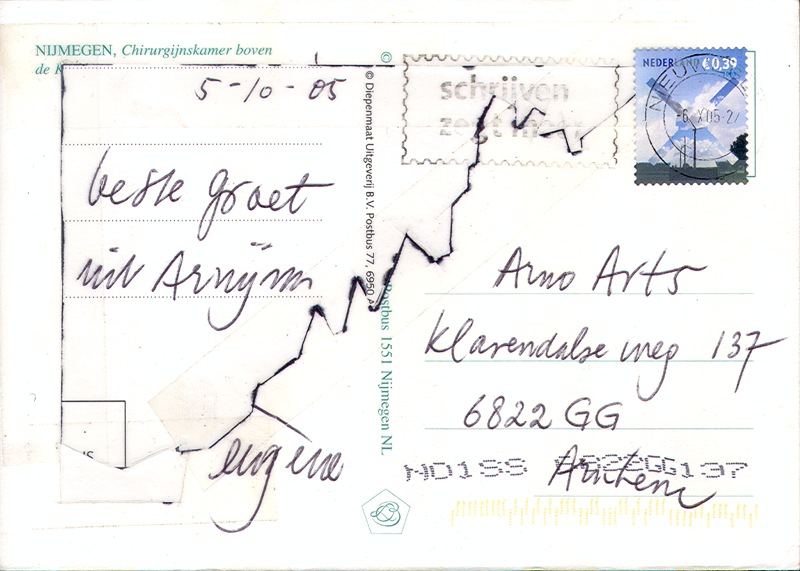 NIJMEGEN, Chirurgijnskamer boven
de K
5-10-05
beste groet
uit Arnÿm
eugene
©
© Diepenmaat Uitgeverij B.V. Postbus 77, 6950 A
Postbus 1551 Nijmegen NL
schrijven
zegt meer
NEDERLAND €0,39
6 X 05-2
Arno Arts
Klarendalse weg 137
6822 GG
Arnhem
NO1SS 6822GG137